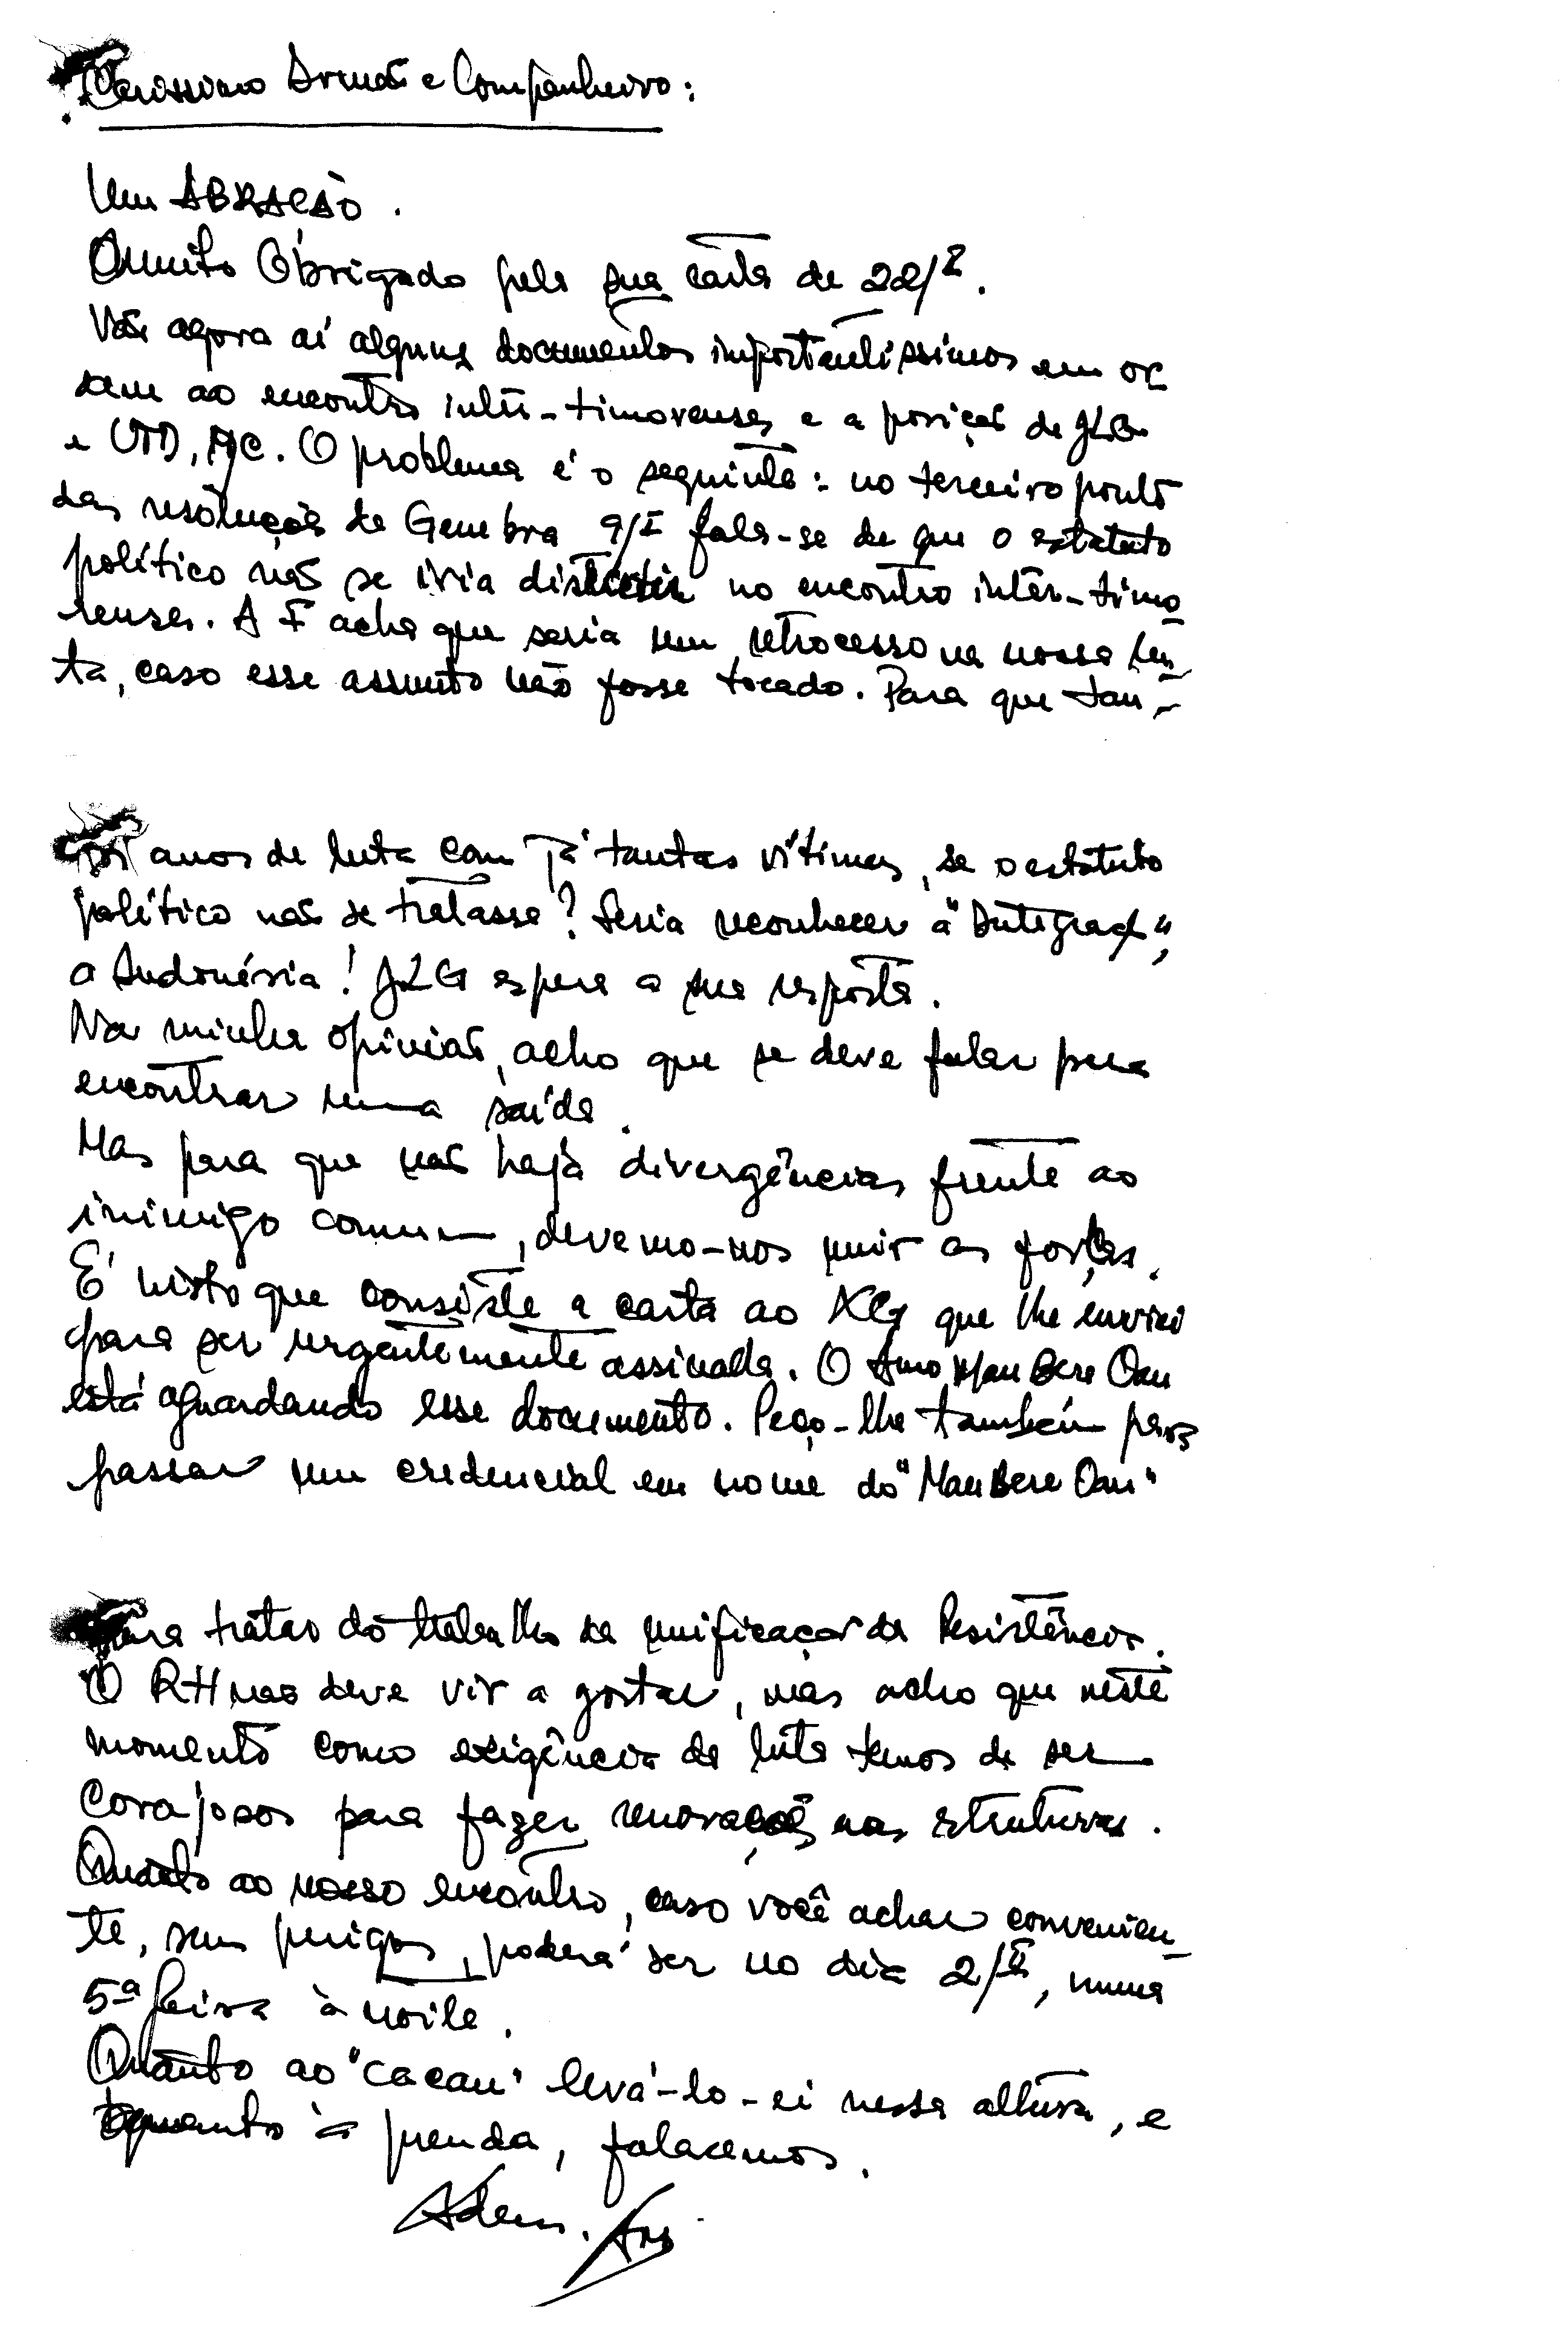 Caríssimo Irmão e Companheiro:
Um ABRAÇÃO.
Muito Obrigado pela sua carta de 22/I.
Vão agora aí alguns documentos importantíssimos em or
dem ao encontro inter-timorenses e a posição de JLG
e UTD, AJC. O problema é o seguinte: no terceiro ponto
das resoluções de Genebra 9/I fala-se de que o estatuto
político não se iria discutir no encontro inter-timo
renses. A F acha que seria um retrocesso na nossa lu
ta, caso esse assunto não fosse tocado. Para que tan-
tos anos de luta com já tantas vítimas, se o estatuto
político não se tratasse? Seria reconhecer a "Integração",
a Indonésia! JLG espera a sua resposta.
Na minha opinião, acho que se deve falar para
encontrar uma saída.
Mas para que não haja divergências frente ao
inimigo comum, devemo-nos unir as forças.
É nisto que consiste a carta ao XG que lhe enviei
para ser urgentemente assinada. O Amo Mau Bere Oan
está aguardando esse documento. Peço-lhe também para
passar um credencial em nome do "Mau Bere Oan"
para tratar do trabalho da unificação da Resistência.
O RH não deve vir a gostar, mas acho que neste
momento como exigência da luta temos de ser
corajosos para fazer renovações nas estruturas.
Quanto ao nosso encontro, caso você achar convenien
te, sem perigos, poderá ser no dia 2/II, numa
5ª feira à noite.
Quanto ao "cacau" levá-lo-ei nessa altura, e
quanto à prenda, falaremos.
Adeus.